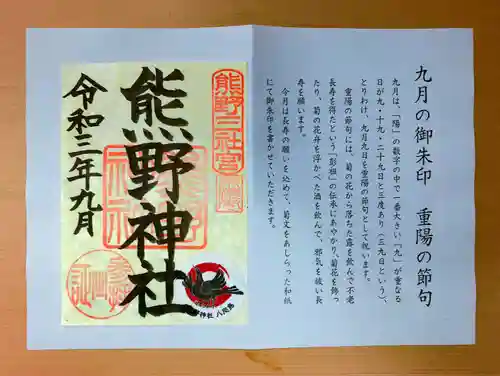 九月の御朱印　重陽の節句
九月は、「陽」の数字の中で一番大きい「九」が重なる
日が九・十九・二十九日と三度あり（三九日という）、
とりわけ、九月九日を重陽の節句として祝います。
重陽の節句には、菊の花から落ちた露を飲んで不老
長寿を得たという「彭祖」の伝承にあやかり、菊花を飾っ
たり、菊の花弁を浮かべた酒を飲んで、邪気を祓い長
寿を願います。
今月は長寿の願いを込めて、菊文をあしらった和紙
にて御朱印を書かせていただきます。
熊野三社宮
熊野神社
令和三年九月